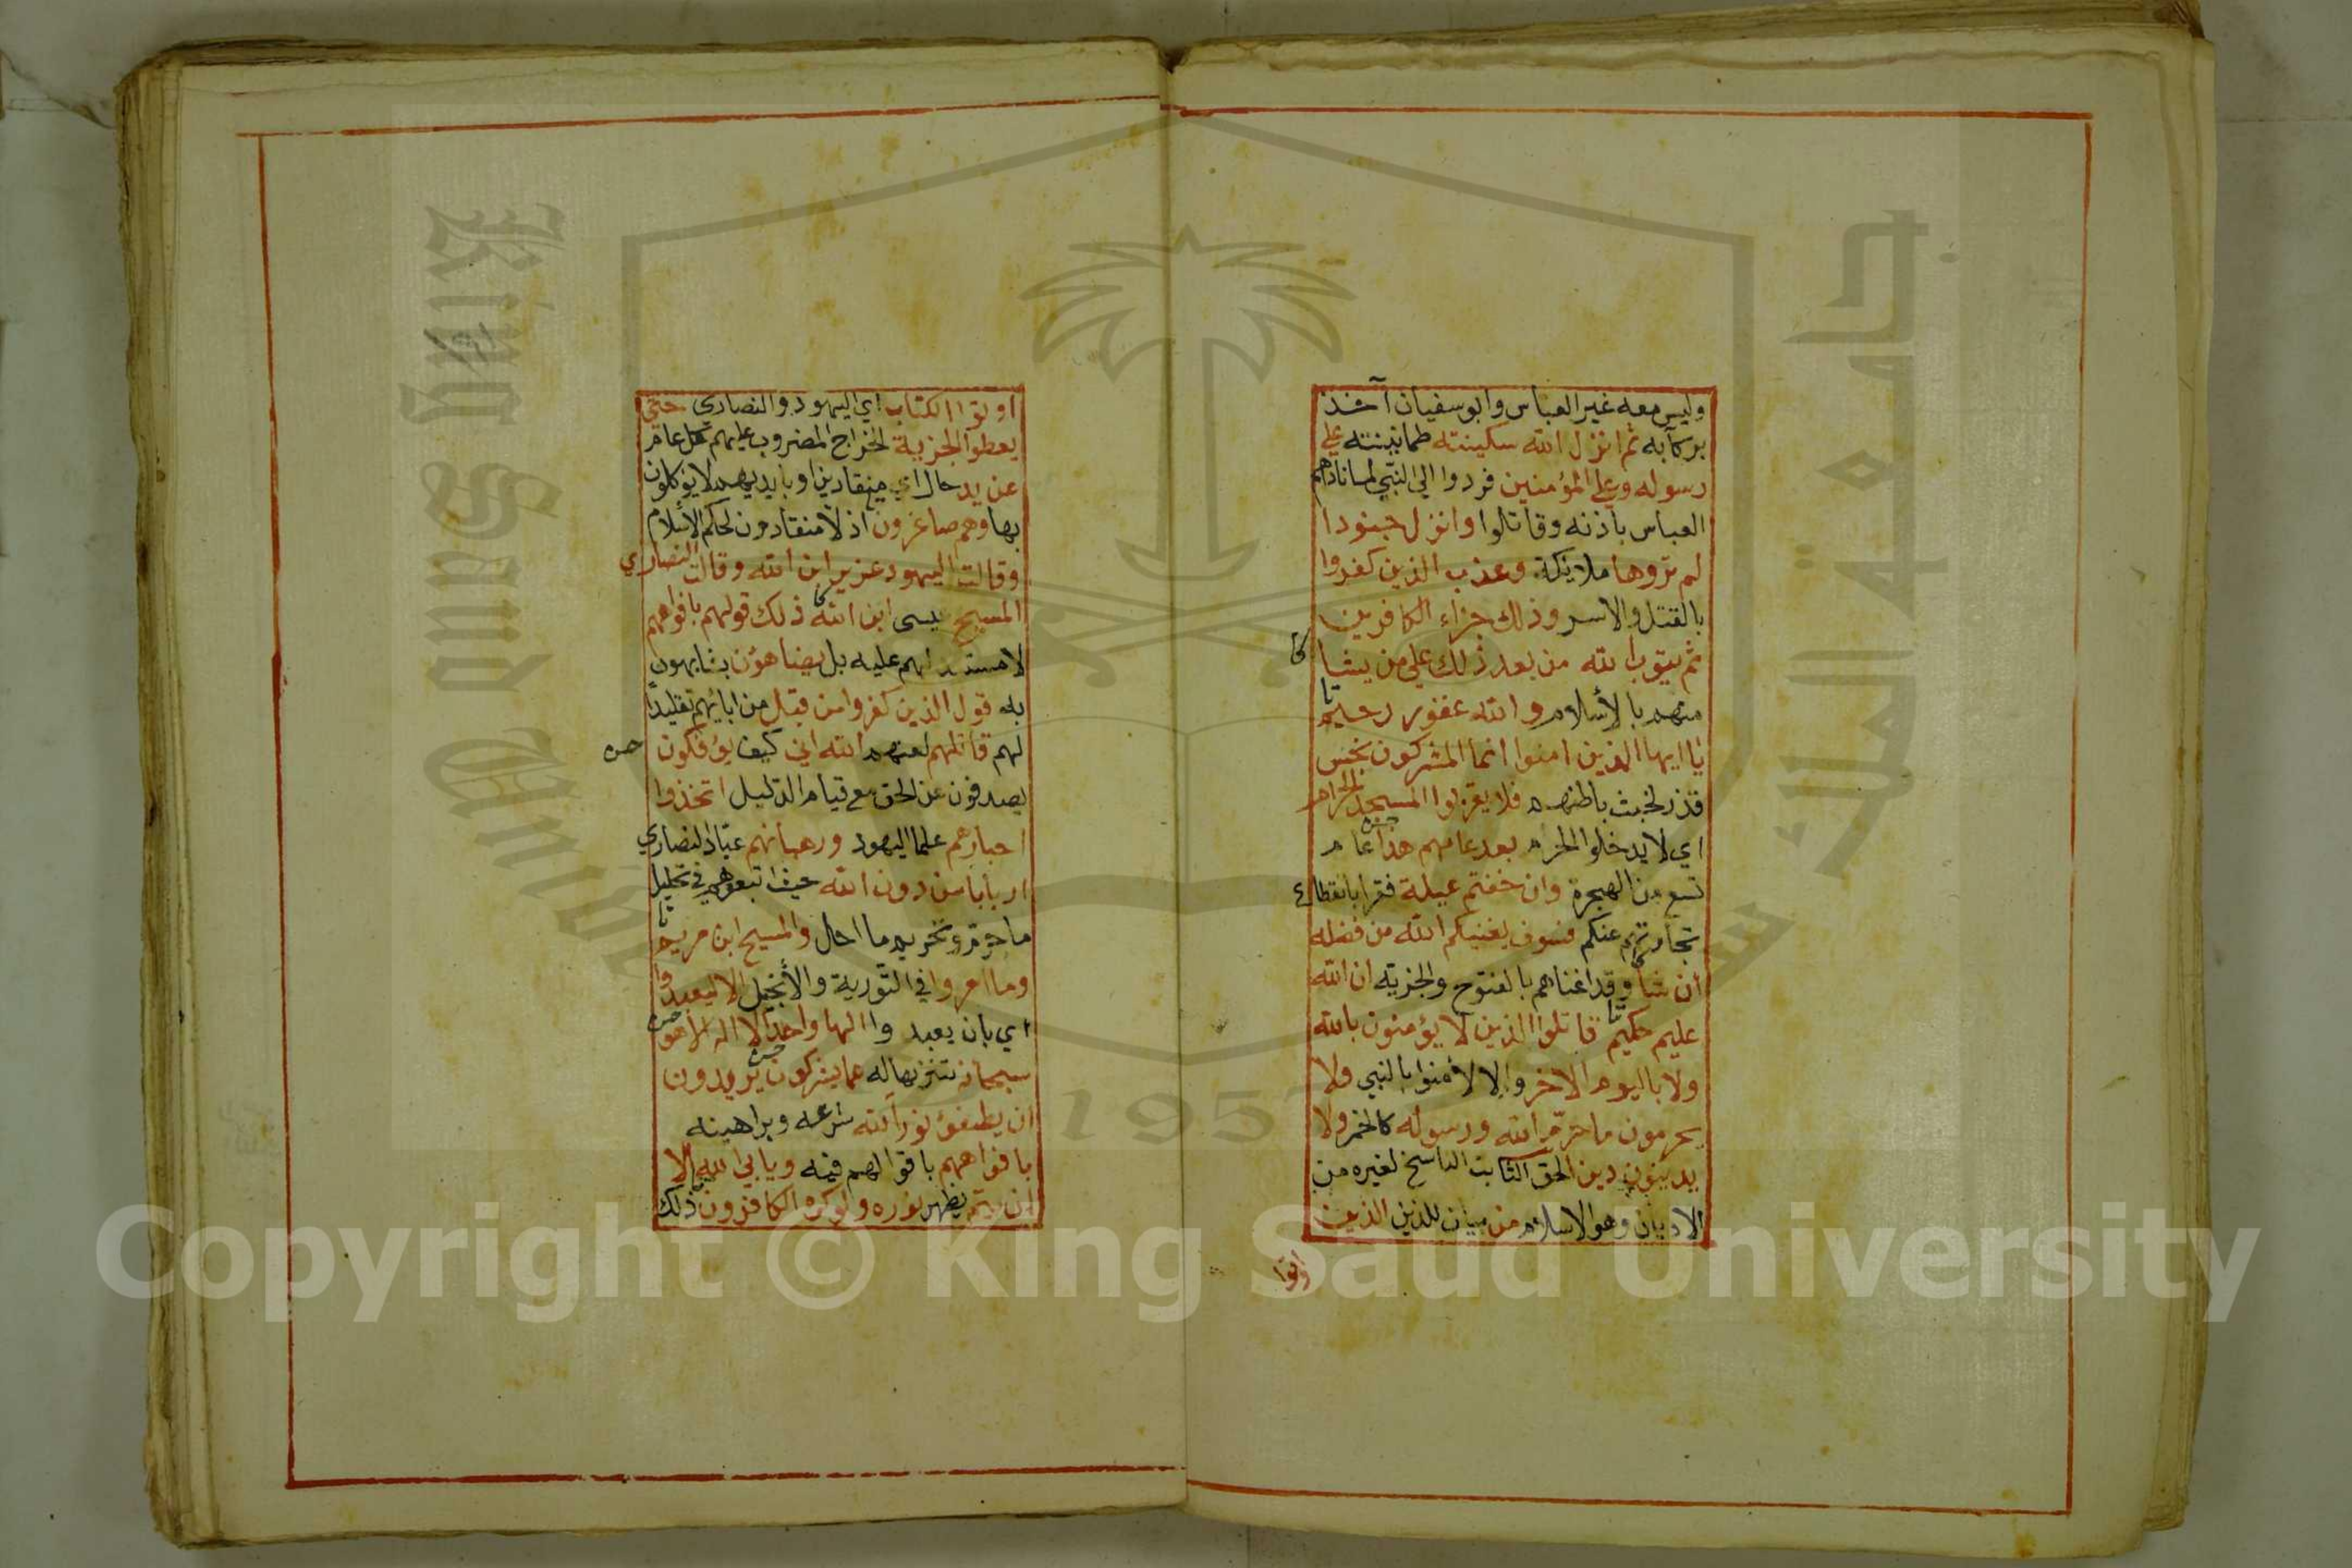 وليس معه غير العباس وابو سفيان آخذ
بركابه ثم انزل الله سكينته طمانينته علي
رسوله وعلي المؤمنين فردوا الي النبي لما ناداهم
العباس باذنه وقاتلوا وانزل جنودا
لم تروها ملائكة وعذب الذين كفروا
بالقتل والاسر وذلك جزاء الكافرين
ثم يتوب الله من بعد ذلك علي من يشا
منهم بالأسلام والله غفور رحيم
يا ايها الذين امنوا انما المشركون نجس
قذر لخبث باطنهم فلا يقربوا المسجد الحرام
اي لا يدخلوا الحرم بعد عامهم هذا عام
تسع من الهجرة وان خفتم عيلة فقرا بانقطاع
تجارتهم عنكم فسوف يغنيكم الله من فضله
ان شا وقد اغناهم بالفتوح والجزية ان الله
عليم حكيم قاتلوا الذين لا يؤمنون بالله
ولا باليوم الاخر والا لأمنوا بالنبي ولا
يحرمون ما حرّم الله ورسوله كالخمر ولا
يدينون دين الحق الثابت الناسخ لغيره من
الاديان وهو الاسلام من بيان للذين الذين
اوتوا
اوتوا الكتاب اي اليهود والنصاري حتي
يعطوا الجزية الخراج المضروب عليهم كل عام
عن يد حال اي منقادين او بايديهم لا يوكلون
بها وهم صاغرون اذلا منقادون لحكم الأسلام
وقالت اليهود عزير ابن الله وقالت النصاري
المسيح عيسى ابن الله ذلك قولهم بافواههم
لا مستند لهم عليه بل يضاهؤن يشابهون
به قول الذين كفروا من قبل من ابائهم تقليدا
لهم قاتلهم لعنهم الله اني كيف يؤفكون
يصدفون عن الحق مع قيام الدليل اتخذوا
احبارهم علما اليهود ورهبانهم عبّاد النصاري
اربابا من دون الله حيث اتبعوهم في تحليل
ما حرم وتحريم ما احل والمسيح ابن مريم
وما امروا في التورية والأنجيل الا ليعبدوا
اي بان يعبدوا الها واحدا لا اله الا هو
سبحانه تنزيها له عما يشركون يريدون
ان يطفؤ نور الله شرعه وبراهينه
بافواههم باقوالهم فيه ويابي الله الا
ان يتم يظهر نوره ولو كره الكافرون ذلك
Copyright © King Saud University
King Saud University
جامعة الملك سعود
1957